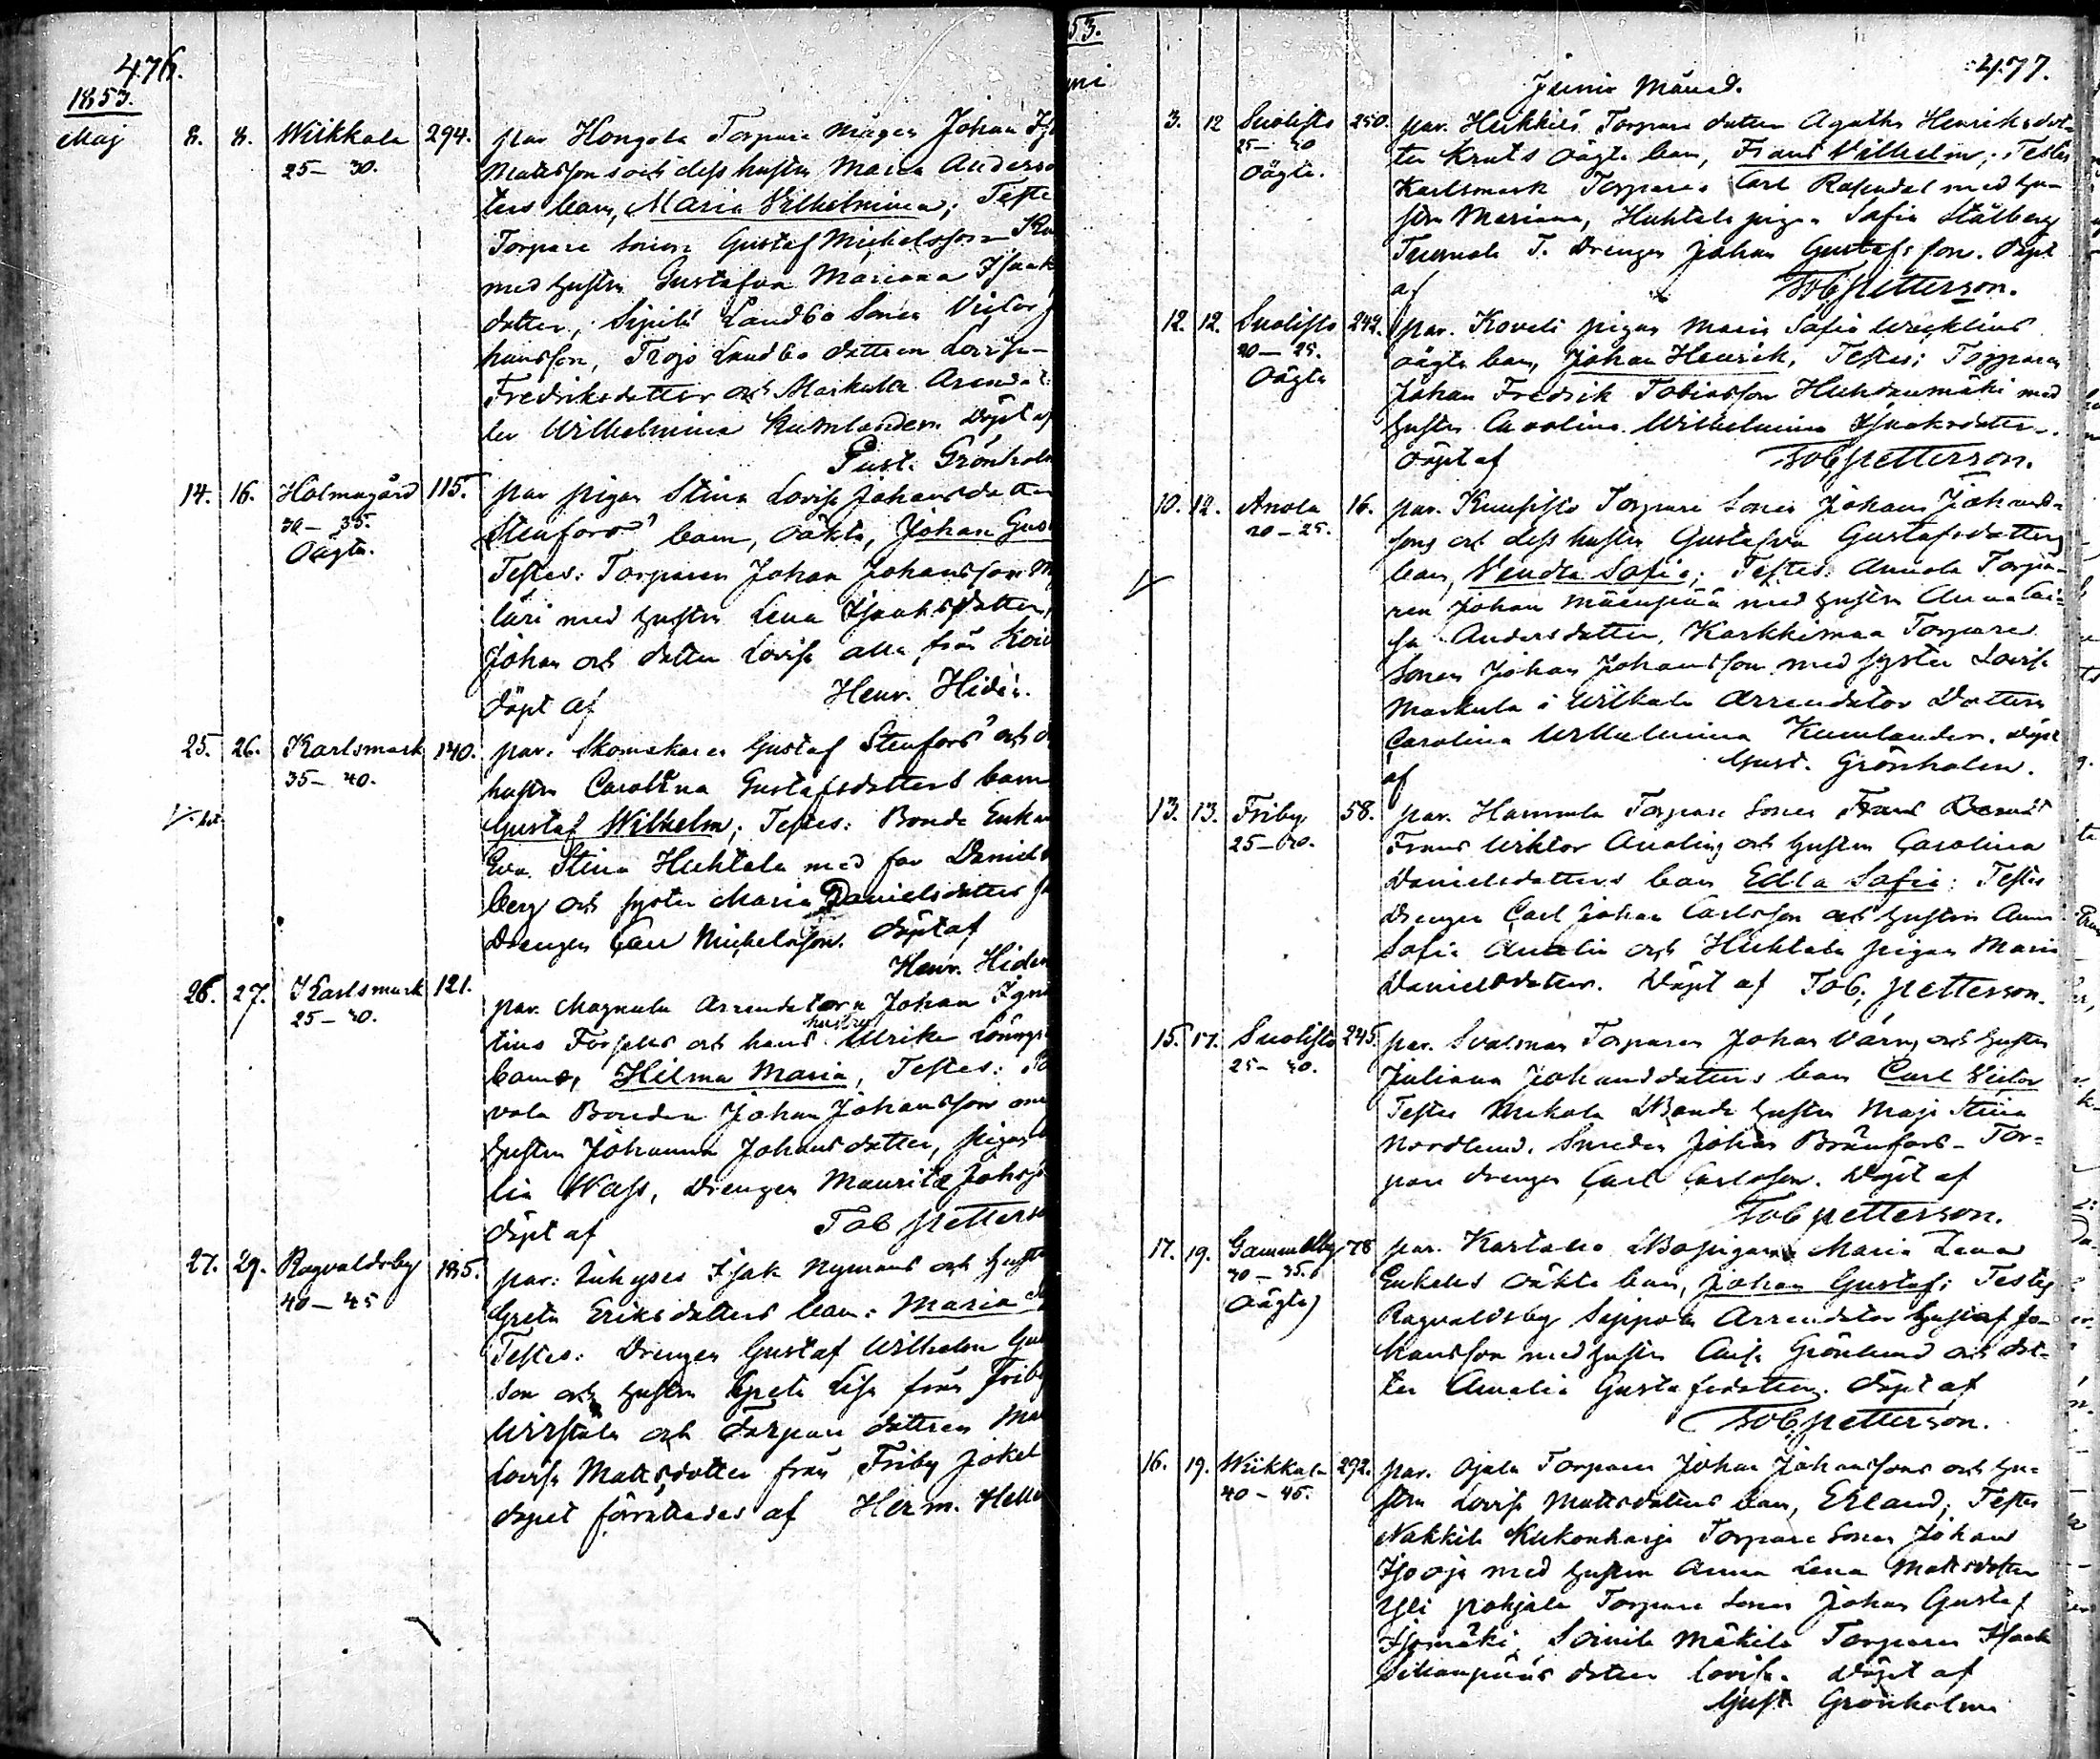 476.
1853.
Maj 8. 8. Wiikkala 294. par Hongola Torpare mågen Johan
25–30. Mattsson och dess hustru Maria Anderss
ters barn, Maria Wilhelmina; Testes
Torpare sonen Gustaf Michelsson
med hustru Gustafva Mariana Isaak
dotter, Sipilä Landbo Sonen Victor J
hansson, Trojo Landbo dottren Lovisa
Fredriksdotter och Markula Arendat
ter Wilhelmina Kumlander. Döpt af
Gust. Grönholm
14. 16. Holmagård 115. par pigan Stina Lovisa Johansdotter
30–35. Stenfors' barn, oäkta, Johan Gus
Oägta. Testes: Torparen Johan Johansson M
lari med hustru Lena Isaaksdotter,
Johan och dotter Lovisa alla från Koiv
döpt af Henr. Hidén.
25. 26. Karlsmark 140. par. Skomakaren Gustaf Stenfors' och d
35–40. hustru Carolina Gustafsdotters barn
Gustaf Wilhelm; Testes: Bonde Enkan
Eva Stina Huhtala med far Daniel
berg och syster Maria Danielsdotter
Drengen Carl Michelsson. döpt af
Henr. Hiden
26. 27. Karlsmark 121. par. Magnula Arrendatorn Johan Igna
25–30. tius Forsells och hans hustru Ulrika Lönnqv
barn, Hilma Maria, Testes:
vola Bonden Johan Johansson
hustru Johanna Johansdotter, pigan
lia Wass, Drengen Mauritz Johans
döpt af Tob petterson
27. 29. Ragvaldsby 185. par: Inhyses Isak Nymans och hustru
40–45 Greta Eriksdotters barn: Maria
Testes: Drengen Gustaf Wilhelm Gus
son och hustru Greta Lisa från Friby
och Torpare dottren Mar
Lovisa Mattsdotter från Friby Jokel
dopet förrättades af Herm. Hell
53.
uni
477.
Junii Månad.
3. 12 Suolisto 250. par. Heikkilä Torpare dotter Agatha Henriksdot-
25–30 ter Kruts oägta barn, Frans Wilhelm; Testes
oägta. Karlsmark Torparen Carl Rosendal med hu-
stru Mariana, Huhtala pigan Sofia Stålberg
T. Drengen Johan Gustafsson. döpt
af Tob petterson.
12. 12. Suolisto 242. par. Koveli pigan Maria Sofia Wecklins
20–25. oägta barn, Johan Henrik, Testes: Torparen
Oägta Johan Fredrik Tobiasson Huhdanmäki med
hustru Carolina Wilhelmina Isaaksdotter.
Döpt af Tob petterson.
10. 12. Anola 16. par. Kuusisto Torpare Sonen Johan Johans-
20–25. sons och dess hustru Gustafva Gustafsdotters
barn, Vendla Sofia; Testes: Annola Torpa-
ren Johan Mäenpää med hustru Anna Cai-
sa Andersdotter, Karkkimaa Torpare
Sonen Johan Johansson med syster Lovisa
Markula i Wilkala Arrendator Dottren
Carolina Wilhelmina Kumlander. döpt
af Gust. Grönholm.
13. 13. Friby 58. par. Hammula Torpare Sonen
25–30. Frans Wiktor Analins och hustrun Carolina
Danielsdotters barn Edla Sofia: Testes
Drengen Carl Johan Carlsson och hustrun Anna
Sofia Analin och Huhtala pigan Maria
Danielsdotter. Döpt af Tob; petterson.
15. 17. Suolisto 245. par. Svalsman Torparen Johan Värns och hustru
25–30. Juliana Johansdotters barn Carl Victor
Testes Mikola Bonde hustru Maja Stina
Nordlund. Smeden Johan Brunfors – Tor=
pare drengen Carl Carlsson. Döpt af
Tob petterson.
17. 19. Gammelby 78 par. Kartano pigans Maria Lena
30–35. Enkells oäkta barn, Johan Gustaf; Testes
(Oägta) Ragvaldsby Seppälä Arrendator Gustaf Jo-
hansson med hustru Caisa Grönlund och dot-
ter Amalia Gustafsdotter. döpt af
Tob petterson.
16. 19. Wiikkala 292. par. Ojala Torparen Johan Johanssons och hu-
40–45. stru Lovisa Mattsdotters barn, Erland; Testes
Nakkila Kukonharja Torpare Sonen Johan
Isooja med hustrun Anna Lena Mattsdotter
Yli pohjala Torpare Sonen Johan Gustaf
Isomäki, Soinila Mäkilä Torparen Isaak
dotter Lovisa. döpt af
Gust. Grönholm